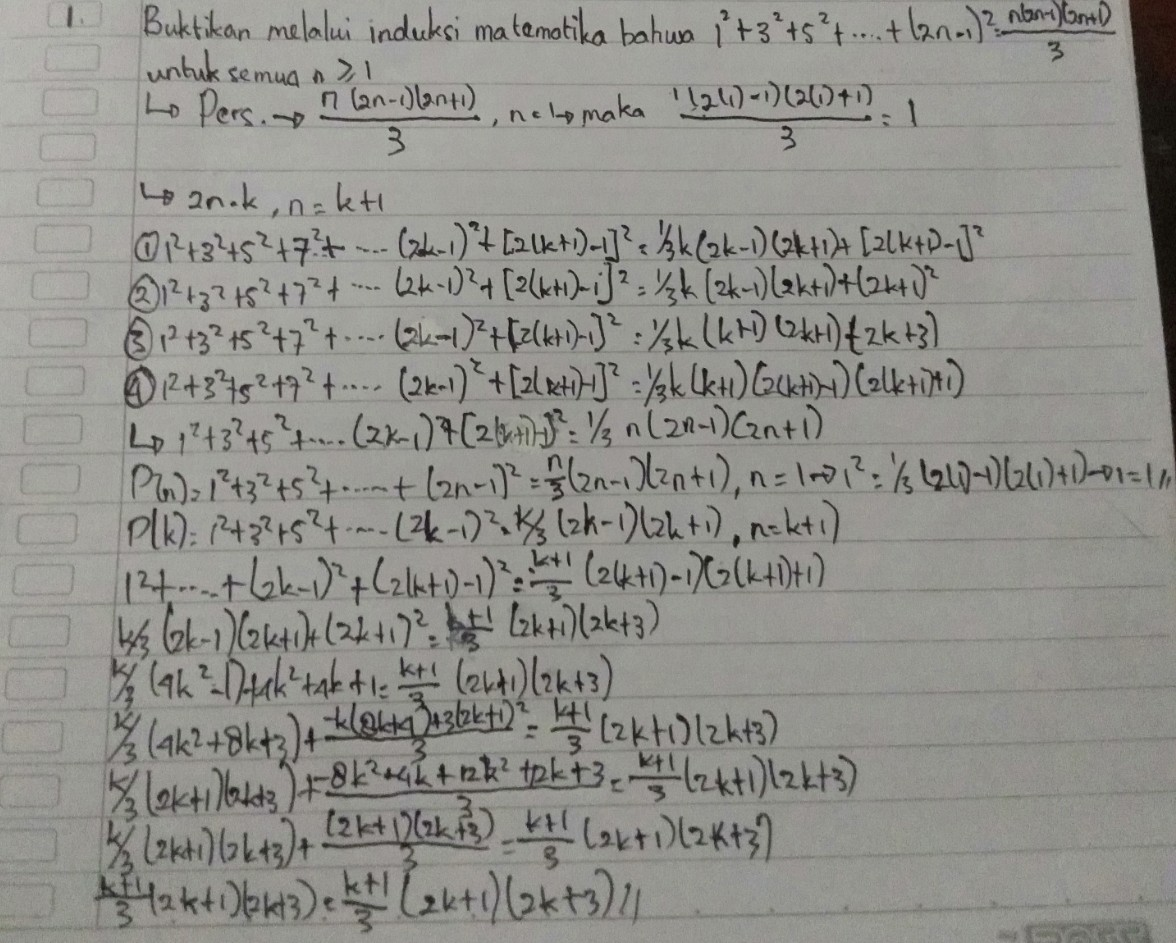 1. Buktikan melalui induksi matematika bahwa 1²+3²+5²+....+(2n-1)²=n(2n-1)(2n+1)/3
untuk semua n ≥ 1
↳ Pers. → n(2n-1)(2n+1)/3, n=1→ maka 1(2(1)-1)(2(1)+1)/3 = 1
↳ 2n.k, n = k+1
① 1²+3²+5²+7²+ .... (2k-1)²+[2(k+1)-1]² = 1/3k(2k-1)(2k+1)+[2(k+1)-1]²
② 1²+3²+5²+7²+ .... (2k-1)²+[2(k+1)-1]² = 1/3k(2k-1)(2k+1)+(2k+1)²
③ 1²+3²+5²+7²+..... (2k-1)²+[2(k+1)-1]² = 1/3k(k+1)(2k+1)(2k+3)
④ 1²+3²+5²+7²+..... (2k-1)²+[2(k+1)-1]² = 1/3k(k+1)(2(k+1)-1)(2(k+1)+1)
↳ 1²+3²+5²+..... (2k-1)²+[2(k+1)-1]² = 1/3 n(2n-1)(2n+1)
P(n) = 1²+3²+5²+......+ (2n-1)² = n/3(2n-1)(2n+1), n = 1 → 1² = 1/3(2(1)-1)(2(1)+1) → 1=1//
P(k) = 1²+3²+5²+..... (2k-1)² = k/3 (2k-1)(2k+1), n=k+1)
1²+....+(2k-1)²+(2(k+1)-1)² = k+1/3 (2(k+1)-1)(2(k+1)+1)
k/3 (2k-1)(2k+1)+(2k+1)² = k+1/3 (2k+1)(2k+3)
k/3 (4k²-1)+4k²+4k+1 = k+1/3 (2k+1)(2k+3)
k/3 (4k²+8k+3)+ -k(8k+4)+3(2k+1)²/3 = k+1/3 (2k+1)(2k+3)
k/3 (2k+1)(2k+3)+ -8k²+4k+12k²+12k+3/3 = k+1/3 (2k+1)(2k+3)
k/3 (2k+1)(2k+3)+ (2k+1)(2k+3)/3 = k+1/3 (2k+1)(2k+3)
k+1/3 (2k+1)(2k+3) = k+1/3 (2k+1)(2k+3)//